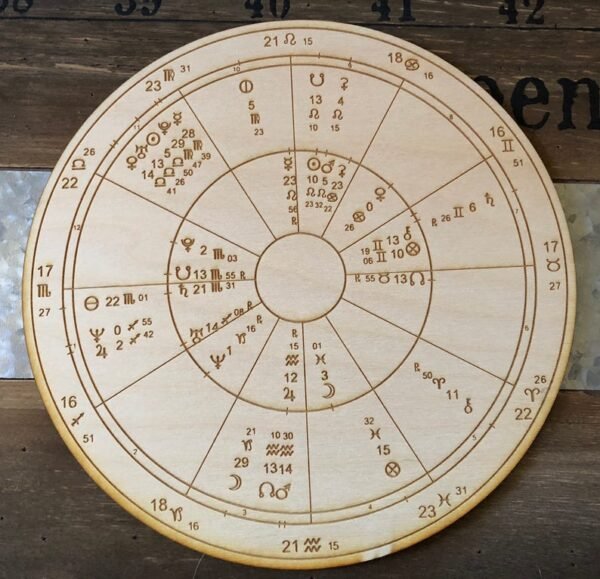 40 41 42
een
21 ♌ 15
18 ♋ 16
16 ♊ 51
17 ♉ 27
22 ♈ 26
23 ♓ 31
21 ♒ 15
18 ♑ 16
16 ♐ 51
17 ♏ 27
22 ♎ 26
23 ♍ 31
5 ♍ 23
☋ 13 ♌ 10
⚳ 4 ♌ 15
℞ 26 ♊ 6 ♄
℞ 50 ♈ 11 ⚷
32 ♓ 15 ⊗
21 ♑ 29 ☽
10 ♒ 13 ☊
30 ♒ 14 ♂
⊖ 22 ♏ 01
♆ 0 ♐ 55
♃ 2 ♐ 42
☿ 28 ♍ 39
29 ♍ 47
☉ 5 ♎ 50
13 ♎ 26
♀ 14 ♎ 41
☿ 23 ♌ 56 ℞
☉ 10 ♌ 23
♂ 5 ♌ 32
⚳ 23 ♋ 22
♀ 0 ♋ 26
⚷ 13 ♊ 19
⊗ 10 ♊ 06
℞ 55 ♉ 13 ☊
01 ♓ 3 ☽
℞ 15 ♒ 12 ♃
♆ 1 ♑ 16 ℞
♅ 14 ♐ 08 ℞
♄ 21 ♏ 31
☋ 13 ♏ 55 ℞
2 ♏ 03
10
11
12
1
2
3
4
5
6
7
8